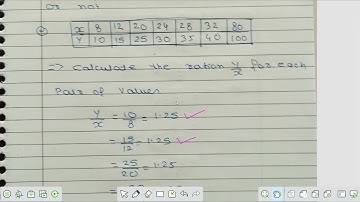 or not
x 8 12 20 24 28 32 80
Y 10 15 25 30 35 40 100
⇒ Calculate the ration Y/x for each
Pair of Values
Y/x = 10/8 = 1.25
= 15/12 = 1.25
= 25/20 = 1.25